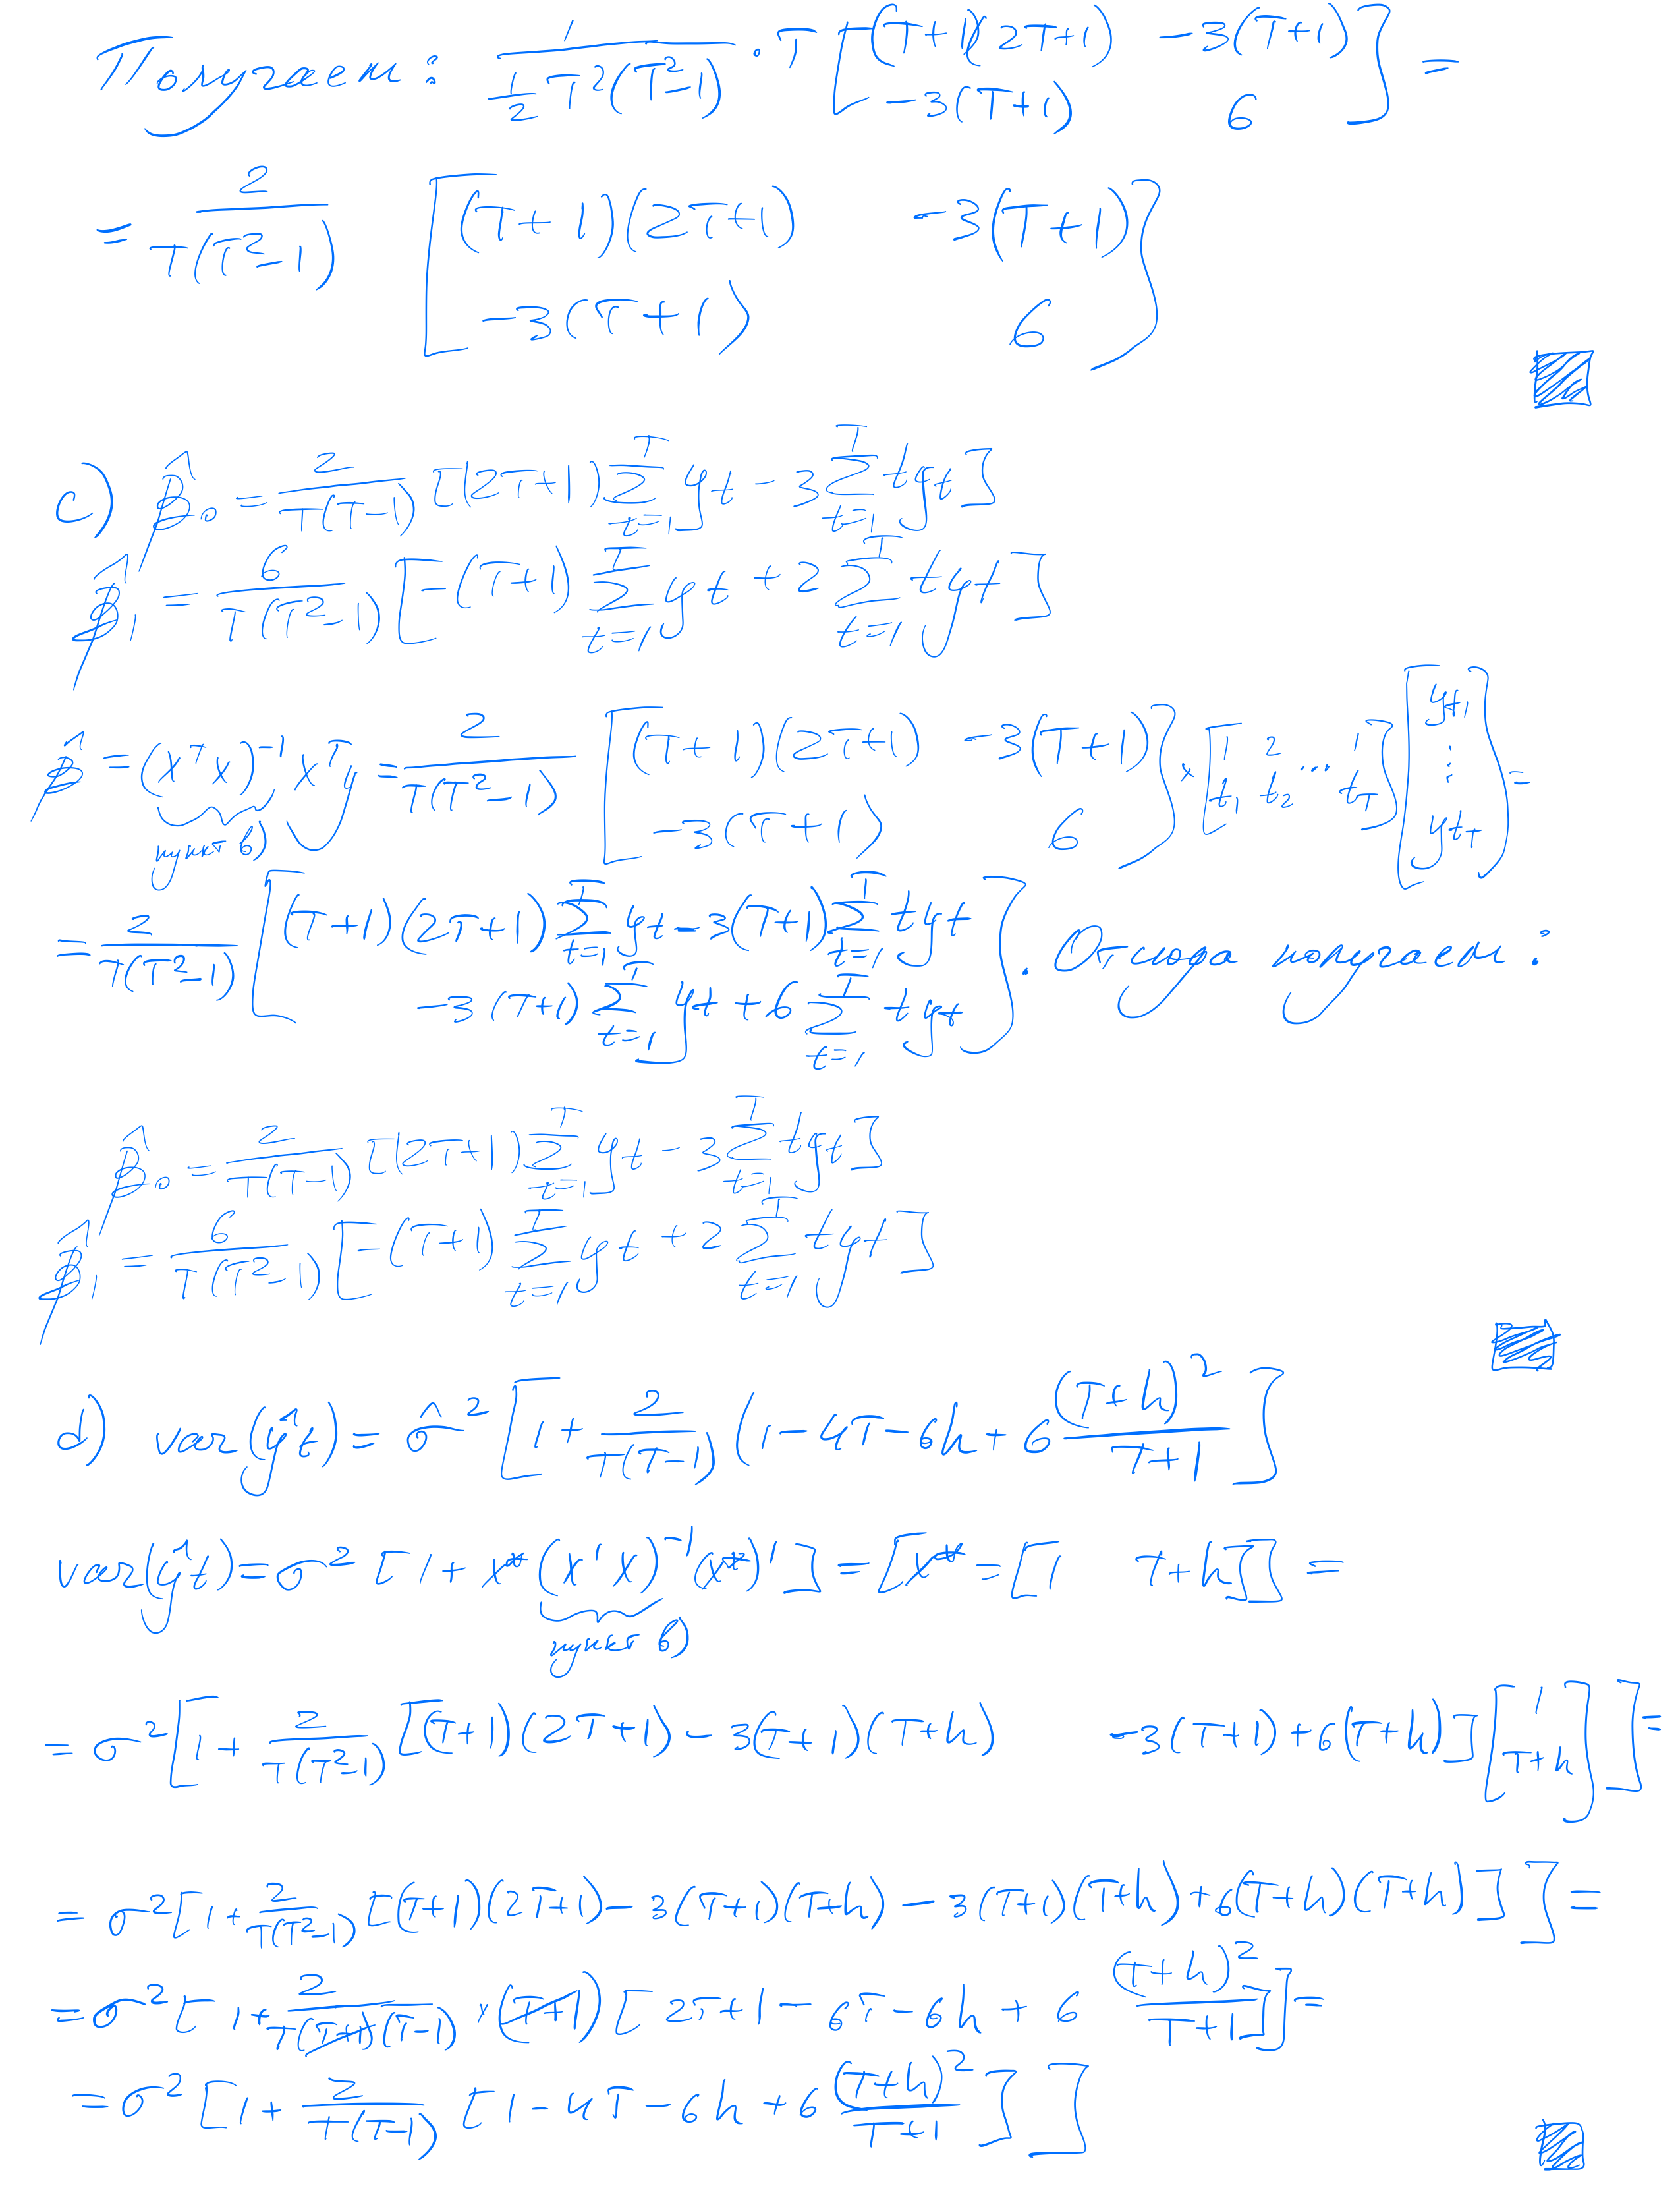 Получаем: \frac{1}{\frac{1}{2}T^2(T^2-1)} · T [(T+1)(2T+1) -3(T+1); -3(T+1) 6] =
= \frac{2}{T(T^2-1)} [(T+1)(2T+1) -3(T+1); -3(T+1) 6]
c) \hat{β}_0 = \frac{2}{T(T-1)} [(2T+1) \sum_{t=1}^{T} y_t - 3 \sum_{t=1}^{T} t y_t]
\hat{β}_1 = \frac{6}{T(T^2-1)} [-(T+1) \sum_{t=1}^{T} y_t + 2 \sum_{t=1}^{T} t y_t]
\hat{β} = (X^T X)^{-1} X^T y = \frac{2}{T(T^2-1)} [(T+1)(2T+1) -3(T+1); -3(T+1) 6] × [1 2 ... 1; t_1 t_2 ... t_T] [y_{t_1}; ⋮; y_{t_T}] =
пункт б)
= \frac{2}{T(T^2-1)} [(T+1)(2T+1) \sum_{t=1}^{T} y_t - 3(T+1) \sum_{t=1}^{T} t y_t; -3(T+1) \sum_{t=1}^{T} y_t + 6 \sum_{t=1}^{T} t y_t]. Отсюда получаем:
\hat{β}_0 = \frac{2}{T(T-1)} [(2T+1) \sum_{t=1}^{T} y_t - 3 \sum_{t=1}^{T} t y_t]
\hat{β}_1 = \frac{6}{T(T^2-1)} [-(T+1) \sum_{t=1}^{T} y_t + 2 \sum_{t=1}^{T} t y_t]
d) var(\hat{y}_t) = \hat{σ}^2 [1 + \frac{2}{T(T-1)} (1 - 4T - 6h + 6 \frac{(T+h)^2}{T+1}]
var(\hat{y}_t) = σ^2 [1 + x* (X'X)^{-1} (x*)'] = [x* = [1 T+h]] =
пункт б)
= σ^2 [1 + \frac{2}{T(T^2-1)} [(T+1)(2T+1) - 3(T+1)(T+h) -3(T+1) + 6(T+h)] [1; T+h]] =
= σ^2 [1 + \frac{2}{T(T^2-1)} [(T+1)(2T+1) - 3(T+1)(T+h) - 3(T+1)(T+h) + 6(T+h)(T+h)]] =
= σ^2 [1 + \frac{2}{T(T+1)(T-1)} × (T+1) [2T+1 - 6T - 6h + 6 \frac{(T+h)^2}{T+1}]] =
= σ^2 [1 + \frac{2}{T(T-1)} [1 - 4T - 6h + 6 \frac{(T+h)^2}{T+1}]]